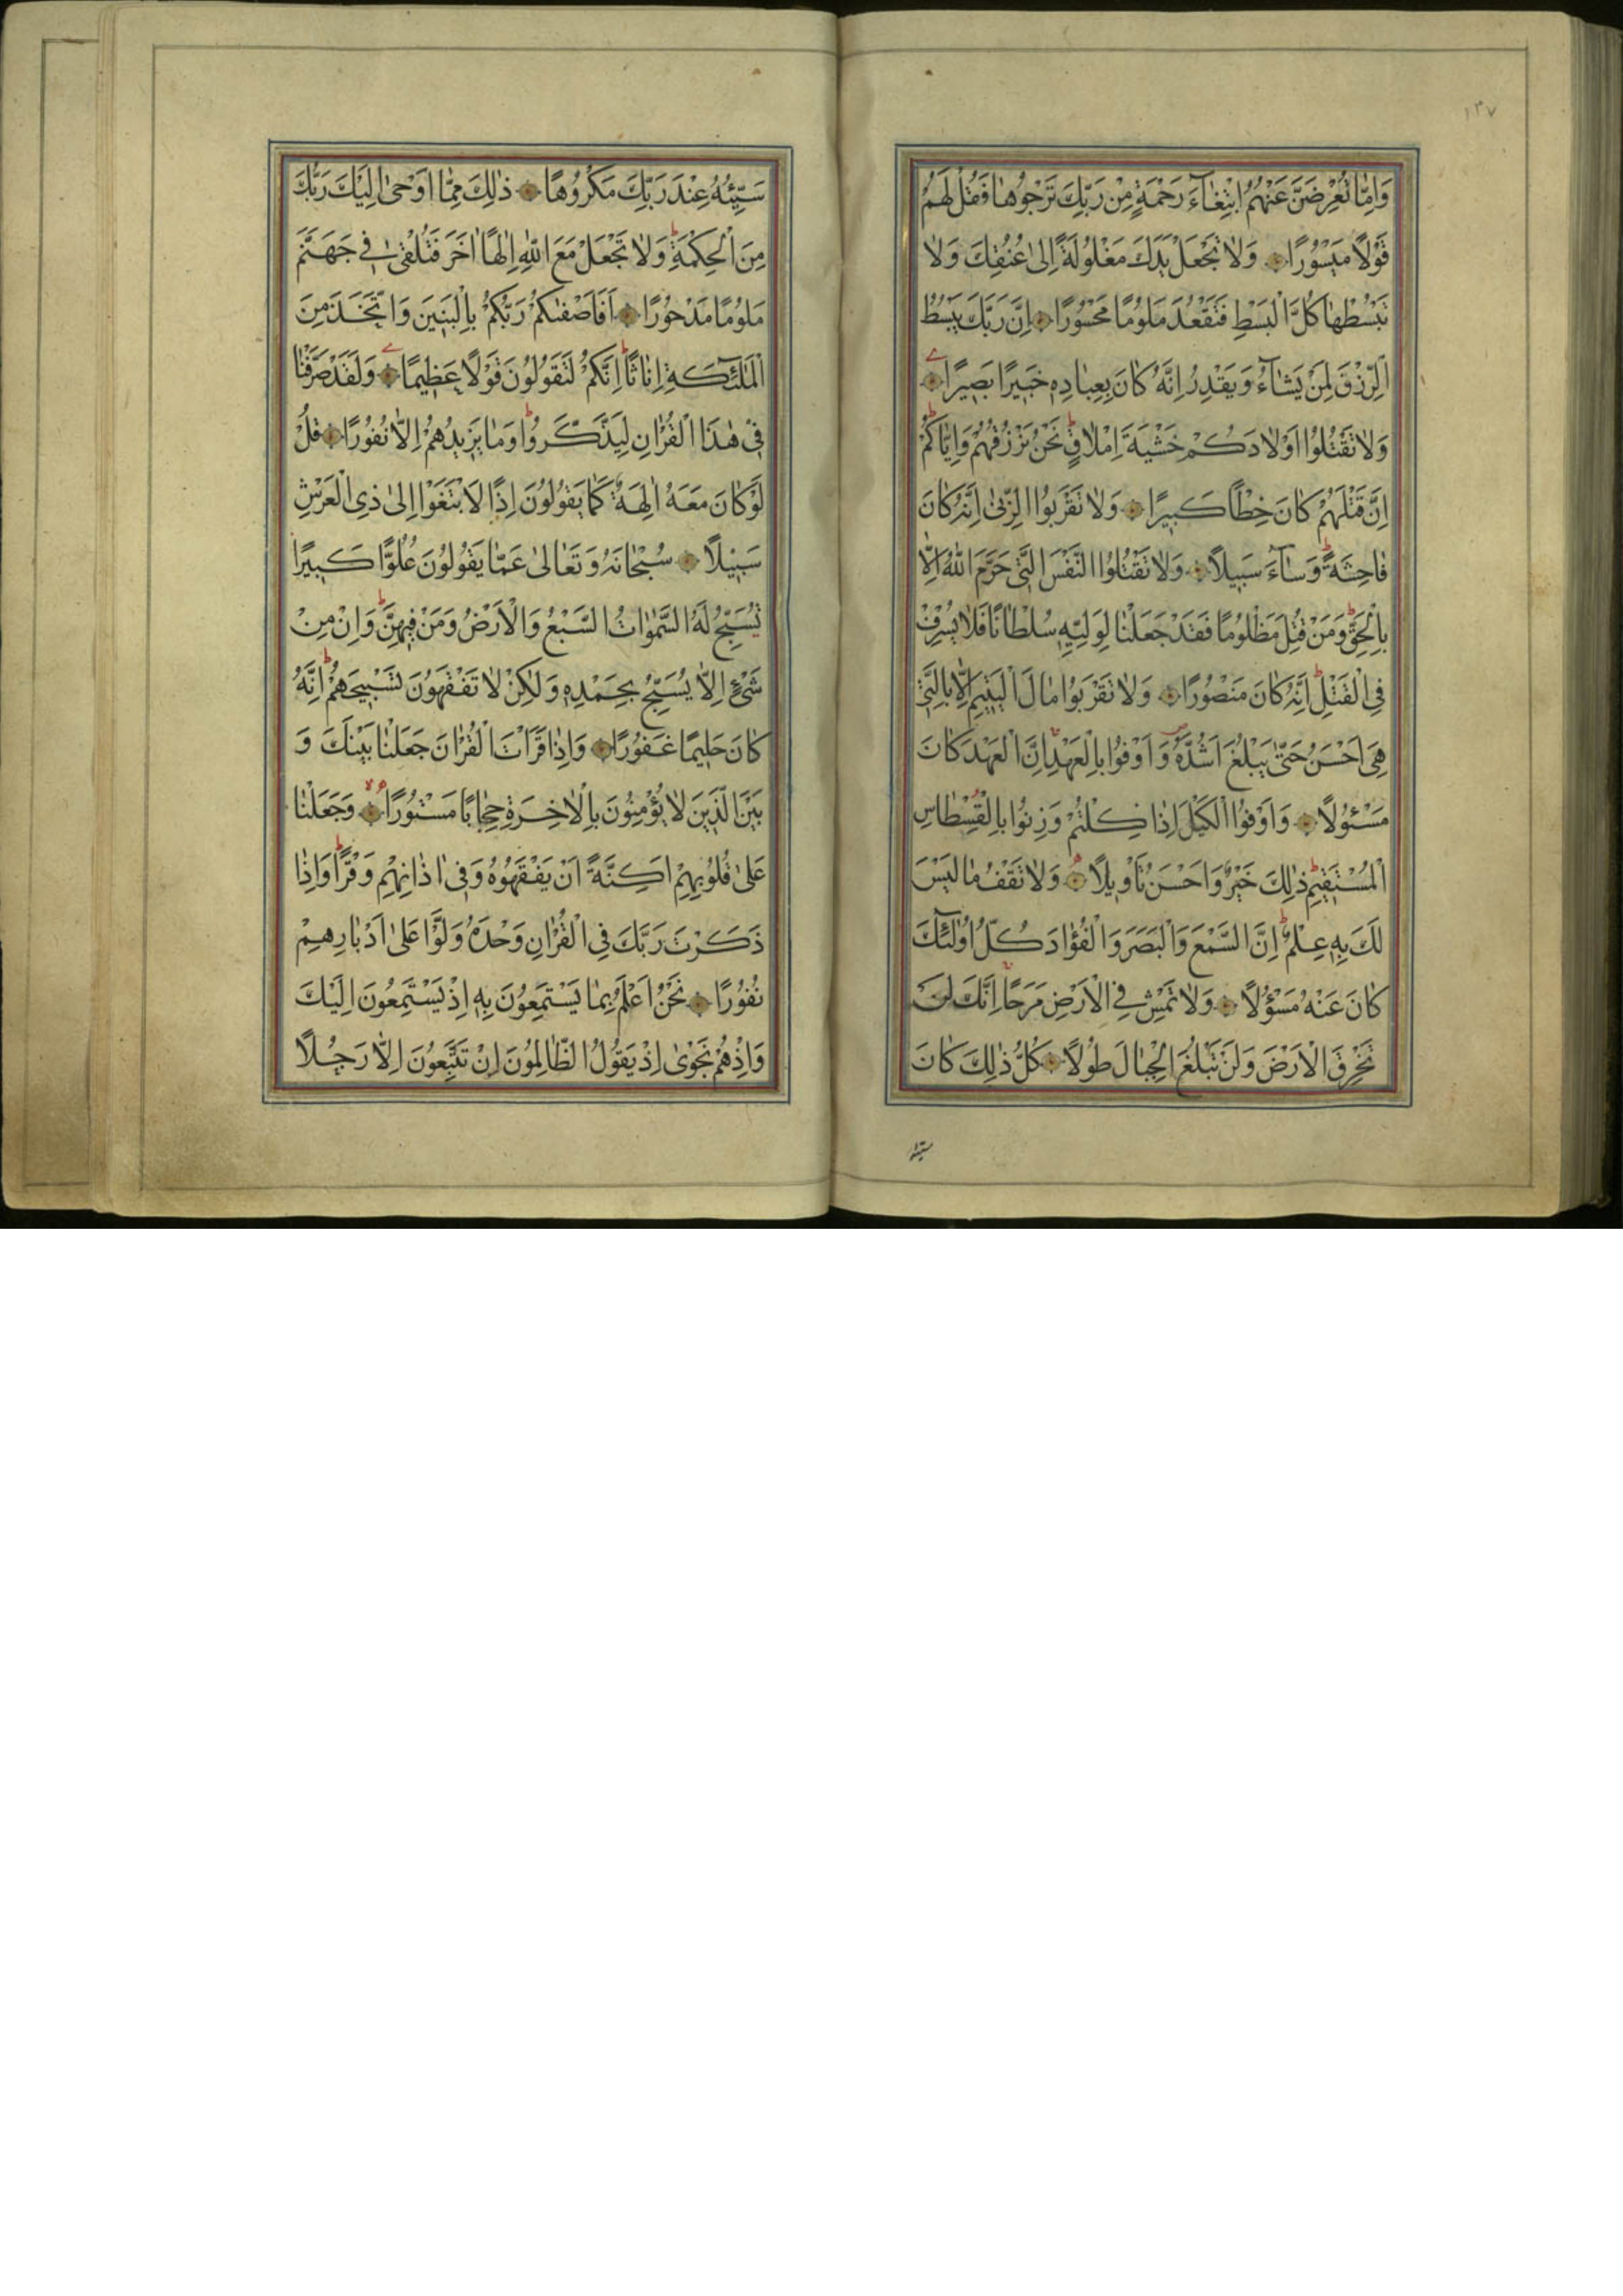 ١٣٧
وَاِمّٰا تُعْرِضَنَّ عَنْهُمُ ابْتِغٰٓاءَ رَحْمَةٍ مِنْ رَبِّكَ تَرْجُوهٰا فَقُلْ لَهُمْ
قَوْلًا مَيْسُورًا وَلٰا تَجْعَلْ يَدَكَ مَغْلُولَةً اِلىٰ عُنُقِكَ وَلٰا
تَبْسُطْهٰا كُلَّ الْبَسْطِ فَتَقْعُدَ مَلُومًا مَحْسُورًا اِنَّ رَبَّكَ يَبْسُطُ
الرِّزْقَ لِمَنْ يَشٰٓاءُ وَيَقْدِرُ اِنَّهُ كٰانَ بِعِبٰادِهِ خَبِيرًا بَصِيرًا
وَلٰا تَقْتُلُوا اَوْلٰادَكُمْ خَشْيَةَ اِمْلٰاقٍ نَحْنُ نَرْزُقُهُمْ وَاِيّٰاكُمْ
اِنَّ قَتْلَهُمْ كٰانَ خِطْأً كَبِيرًا وَلٰا تَقْرَبُوا الزِّنىٰ اِنَّهُ كٰانَ
فٰاحِشَةً وَسٰٓاءَ سَبِيلًا وَلٰا تَقْتُلُوا النَّفْسَ الَّتِي حَرَّمَ اللّٰهُ اِلّٰا
بِالْحَقِّ وَمَنْ قُتِلَ مَظْلُومًا فَقَدْ جَعَلْنٰا لِوَلِيِّهِ سُلْطٰانًا فَلٰا يُسْرِفْ
فِي الْقَتْلِ اِنَّهُ كٰانَ مَنْصُورًا وَلٰا تَقْرَبُوا مٰالَ الْيَتِيمِ اِلّٰا بِالَّتِي
هِيَ اَحْسَنُ حَتّىٰ يَبْلُغَ اَشُدَّهُ وَاَوْفُوا بِالْعَهْدِ اِنَّ الْعَهْدَ كٰانَ
مَسْئُولًا وَاَوْفُوا الْكَيْلَ اِذٰا كِلْتُمْ وَزِنُوا بِالْقُسْطٰاسِ
الْمُسْتَقِيمِ ذٰلِكَ خَيْرٌ وَاَحْسَنُ تَأْوِيلًا وَلٰا تَقْفُ مٰا لَيْسَ
لَكَ بِهِ عِلْمٌ اِنَّ السَّمْعَ وَالْبَصَرَ وَالْفُؤٰادَ كُلُّ اُولٰٓئِكَ
كٰانَ عَنْهُ مَسْؤُلًا وَلٰا تَمْشِ فِي الْاَرْضِ مَرَحًا اِنَّكَ لَنْ
تَخْرِقَ الْاَرْضَ وَلَنْ تَبْلُغَ الْجِبٰالَ طُولًا كُلُّ ذٰلِكَ كٰانَ
سيئه
سَيِّئُهُ عِنْدَ رَبِّكَ مَكْرُوهًا ذٰلِكَ مِمّٰا اَوْحىٰ اِلَيْكَ رَبُّكَ
مِنَ الْحِكْمَةِ وَلٰا تَجْعَلْ مَعَ اللّٰهِ اِلٰهًا اٰخَرَ فَتُلْقىٰ فِي جَهَنَّمَ
مَلُومًا مَدْحُورًا اَفَاَصْفٰىكُمْ رَبُّكُمْ بِالْبَنِينَ وَاتَّخَذَ مِنَ
الْمَلٰٓئِكَةِ اِنٰاثًا اِنَّكُمْ لَتَقُولُونَ قَوْلًا عَظِيمًا وَلَقَدْ صَرَّفْنٰا
فِي هٰذَا الْقُرْاٰنِ لِيَذَّكَّرُوا وَمٰا يَزِيدُهُمْ اِلّٰا نُفُورًا قُلْ
لَوْ كٰانَ مَعَهُ اٰلِهَةٌ كَمٰا يَقُولُونَ اِذًا لَابْتَغَوْا اِلىٰ ذِي الْعَرْشِ
سَبِيلًا سُبْحٰانَهُ وَتَعٰالىٰ عَمّٰا يَقُولُونَ عُلُوًّا كَبِيرًا
تُسَبِّحُ لَهُ السَّمٰوٰاتُ السَّبْعُ وَالْاَرْضُ وَمَنْ فِيهِنَّ وَاِنْ مِنْ
شَيْءٍ اِلّٰا يُسَبِّحُ بِحَمْدِهِ وَلٰكِنْ لٰا تَفْقَهُونَ تَسْبِيحَهُمْ اِنَّهُ
كٰانَ حَلِيمًا غَفُورًا وَاِذٰا قَرَأْتَ الْقُرْاٰنَ جَعَلْنٰا بَيْنَكَ وَ
بَيْنَ الَّذِينَ لٰا يُؤْمِنُونَ بِالْاٰخِرَةِ حِجٰابًا مَسْتُورًا وَجَعَلْنٰا
عَلىٰ قُلُوبِهِمْ اَكِنَّةً اَنْ يَفْقَهُوهُ وَفِي اٰذٰانِهِمْ وَقْرًا وَاِذٰا
ذَكَرْتَ رَبَّكَ فِي الْقُرْاٰنِ وَحْدَهُ وَلَّوْا عَلىٰ اَدْبٰارِهِمْ
نُفُورًا نَحْنُ اَعْلَمُ بِمٰا يَسْتَمِعُونَ بِهِ اِذْ يَسْتَمِعُونَ اِلَيْكَ
وَاِذْ هُمْ نَجْوىٰ اِذْ يَقُولُ الظّٰالِمُونَ اِنْ تَتَّبِعُونَ اِلّٰا رَجُلًا